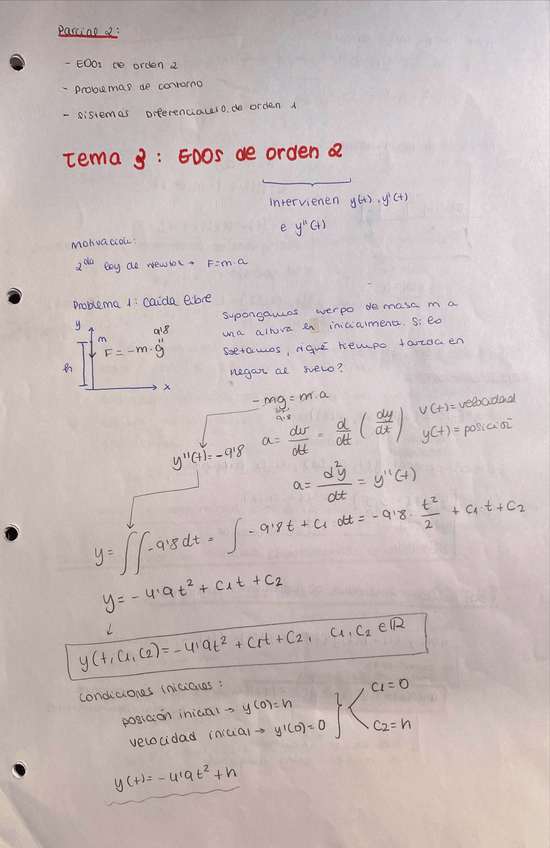 Parcial 2:
- EDOs de orden 2
- Problemas de contorno
- Sistemas Diferenciales O. de orden 1
Tema 3: EDOS de orden 2
Intervienen y(t), y'(t)
e y''(t)
Motivación:
2nda ley de newton → F=m·a
Problema 1: Caída libre
Supongamos cuerpo de masa m a
una altura h inicialmente. Si lo
soltamos, ¿qué tiempo tarda en
llegar al suelo?
y
m
9'8
F = -m·g
h
x
-mg = m·a
9'8
a = dv/dt = d/dt (dy/dt)
v(t) = velocidad
y(t) = posición
y''(t) = -9'8
a = d²y/dt = y''(t)
y = ∫∫ -9'8 dt = ∫ -9'8t + C1 dt = -9'8 · t²/2 + C1·t + C2
y = -4'9t² + C1t + C2
↓
y(t, C1, C2) = -4'9t² + C1t + C2, C1, C2 ∈ ℝ
Condiciones iniciales:
posición inicial → y(0) = h
velocidad inicial → y'(0) = 0
C1 = 0
C2 = h
y(t) = -4'9t² + h